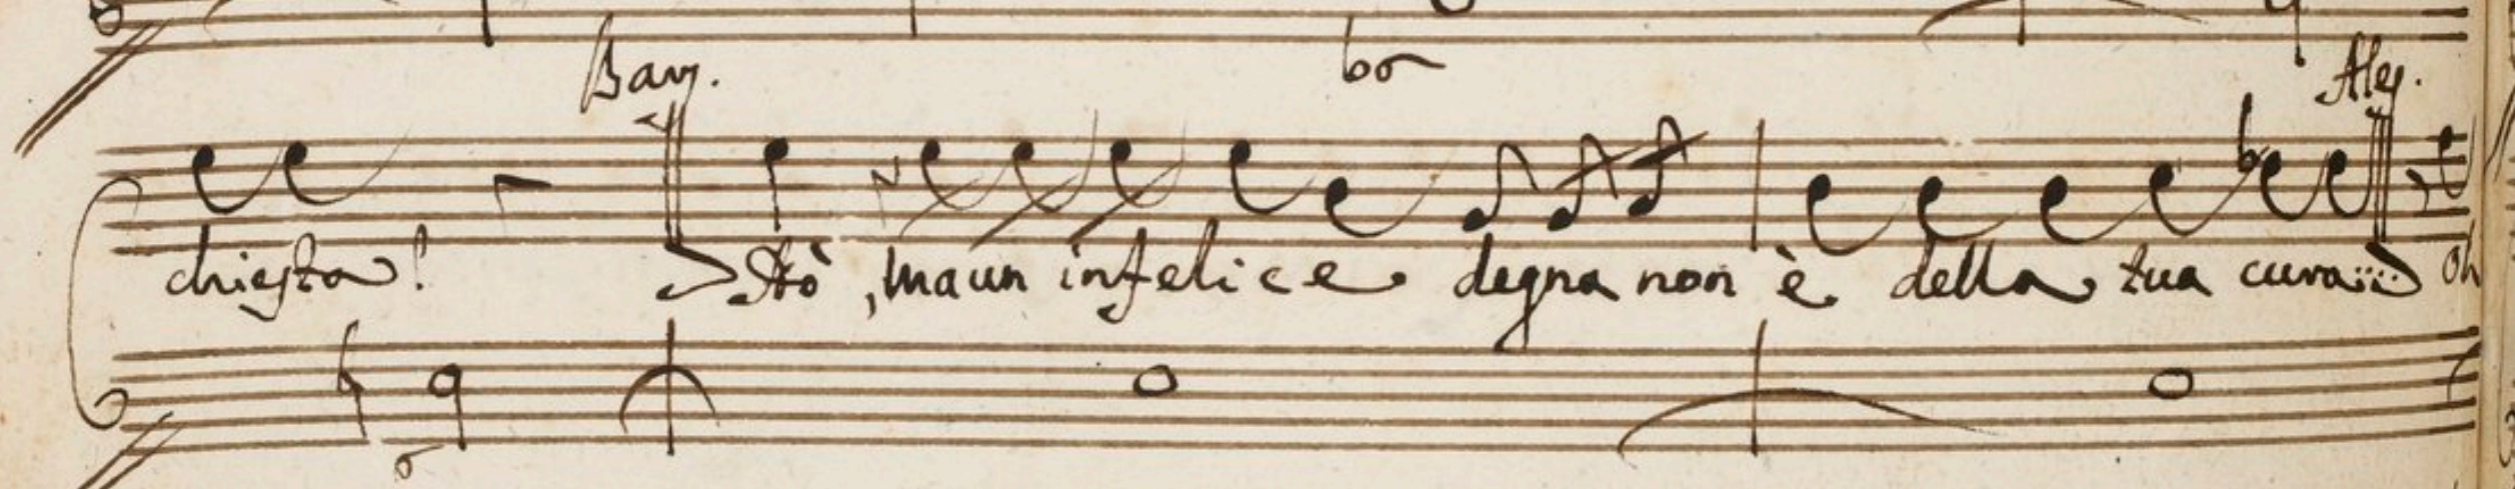 Bars. Ales.
chiesta! Stò, ma un infelice degna non è della tua cura... oh